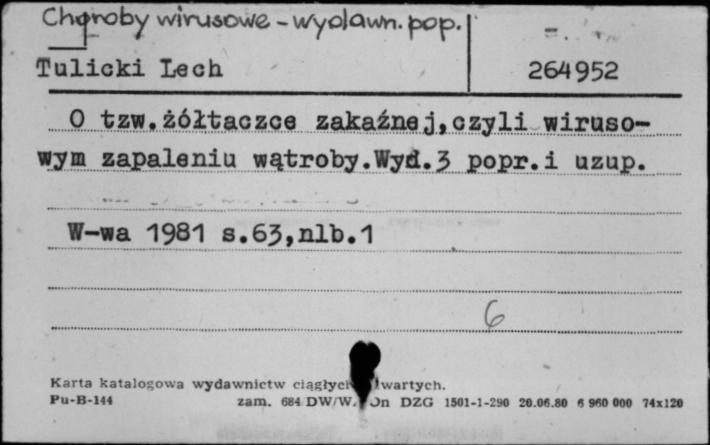 Choroby wirusowe - wydawn. pop.
Tulicki Lech 264952
O tzw.żółtaczce zakaźnej,czyli wiruso-
wym zapaleniu wątroby.Wyd.3 popr.i uzup.
W-wa 1981 s.63,nlb.1
6
Karta katalogowa wydawnictw
Pu-B-144 zam. 684 DW/W. DZG 1501-1-290 20.06.80 6 960 000 74x120